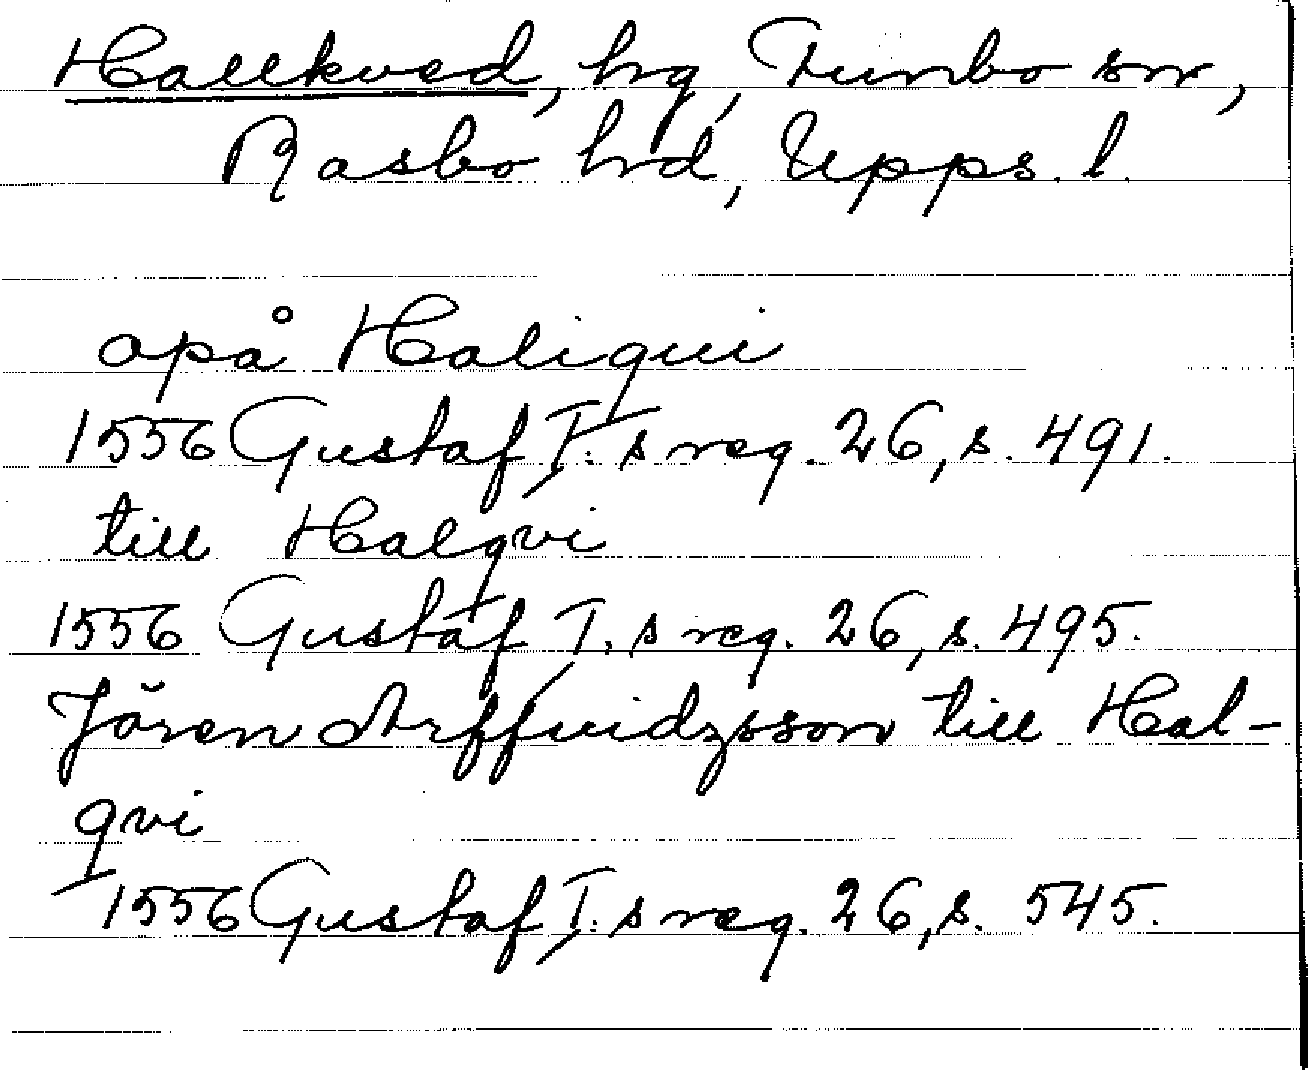 Hallkved, hg, Funbo sn,
Rasbo hd, Upps. l.
opå Haliqui
1556 Gustaf I:s reg. 26, s. 491.
till Halqvi
1556 Gustaf I.s reg. 26, s. 495.
Jören Arffuidzsson till Hal-
qvi
1556 Gustaf I:s reg. 26, s. 545.